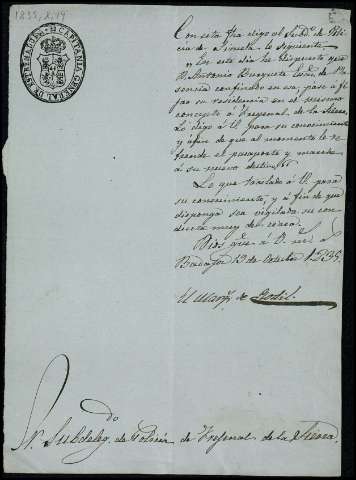 1835, X, 19
CAPITANIA GENERAL DE ESTREMADURA
Con esta fha digo al Subd.º de Policia de
lo siguiente
"En este dia he dispuesto que
D. Antonio
confinado en esa, pase a fi
jar su residencia en el mismo
concepto á Fregenal de la Sierra.
Lo digo á U. para su conocimiento
y á fin de que al momento le re
frende el pasaporte y marche
á su nuevo destino."
Lo que traslado á U. para
su conocimiento, y á fin de que
disponga sea vigilada su con
ducta muy de cerca.
Dios gue. á U. m. a.
Badajoz 19 de Octubre 1835.
El Marq.s de Rodil.
Sr. Subdeleg.do de Policia de Fregenal de la Sierra.